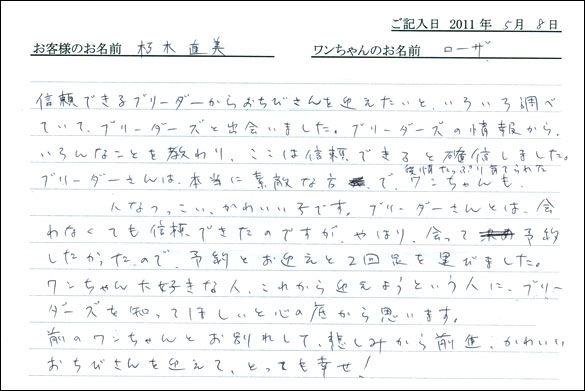 ご記入日 2011 年 5 月 8 日
お客様のお名前 朽木 直美 ワンちゃんのお名前 ローザ
信頼できるブリーダーからおちびさんを迎えたいと、いろいろ調べ
ていて、ブリーダーズと出会いました。ブリーダーズの情報から、
いろんなことを教わり、ここは信頼できると確信しました。
ブリーダーさんは、本当に素敵な方で、愛情たっぷり育てられたワンちゃんも、
人なつっこい、かわいい子です。ブリーダーさんとは、会
わなくても信頼できたのですが、やはり、会って予約
したかったので、予約とお迎えと2回足を運びました。
ワンちゃん大好きな人、これから迎えようという人に、ブリー
ダーズを知ってほしいと心の底から思います。
前のワンちゃんとお別れして、悲しみから前進、かわいい
おちびさんを迎えて、とっても幸せ!